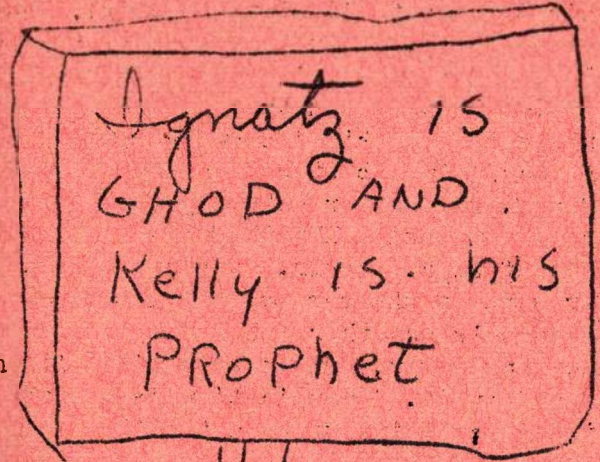 Ignatz is
GHOD AND
Kelly is his
PROPhet
n